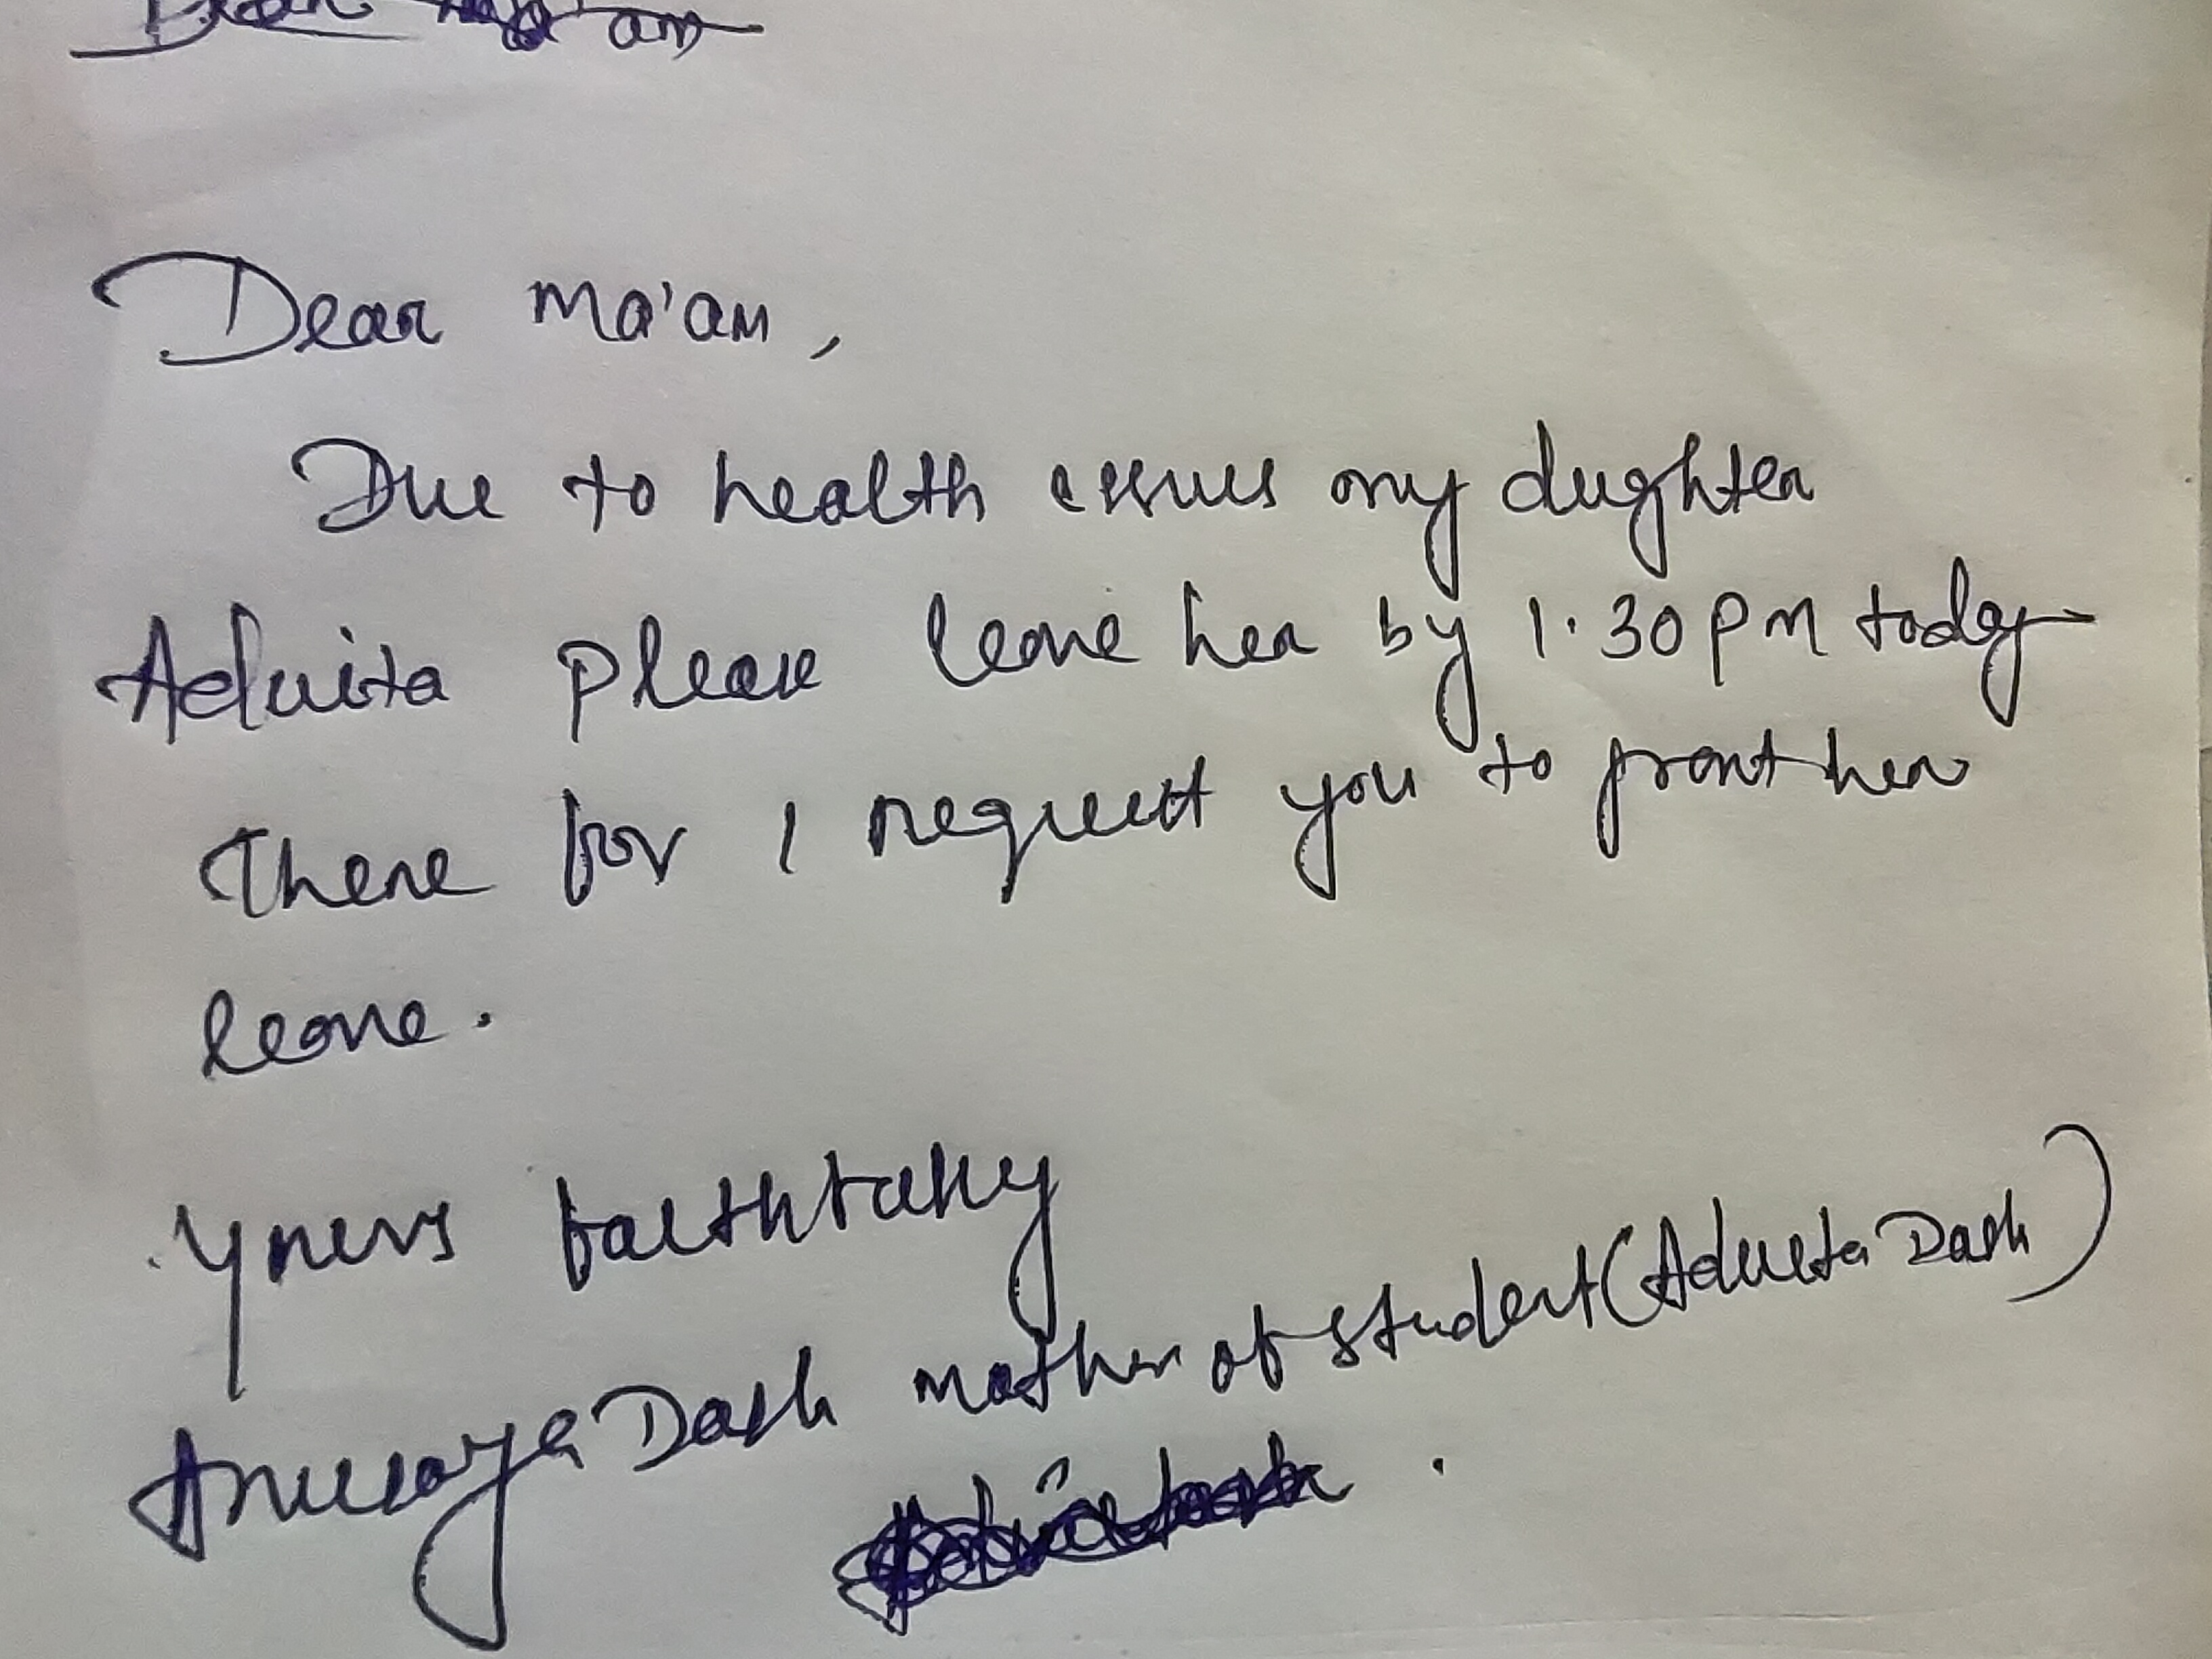 Dear ma'am,
Due to health issues my dughter
Advita please leave her by 1.30 pm today
There for I request you to grant her
leave.
Yours faithfully
Anusaya Dash mother of student (Advita Dash)